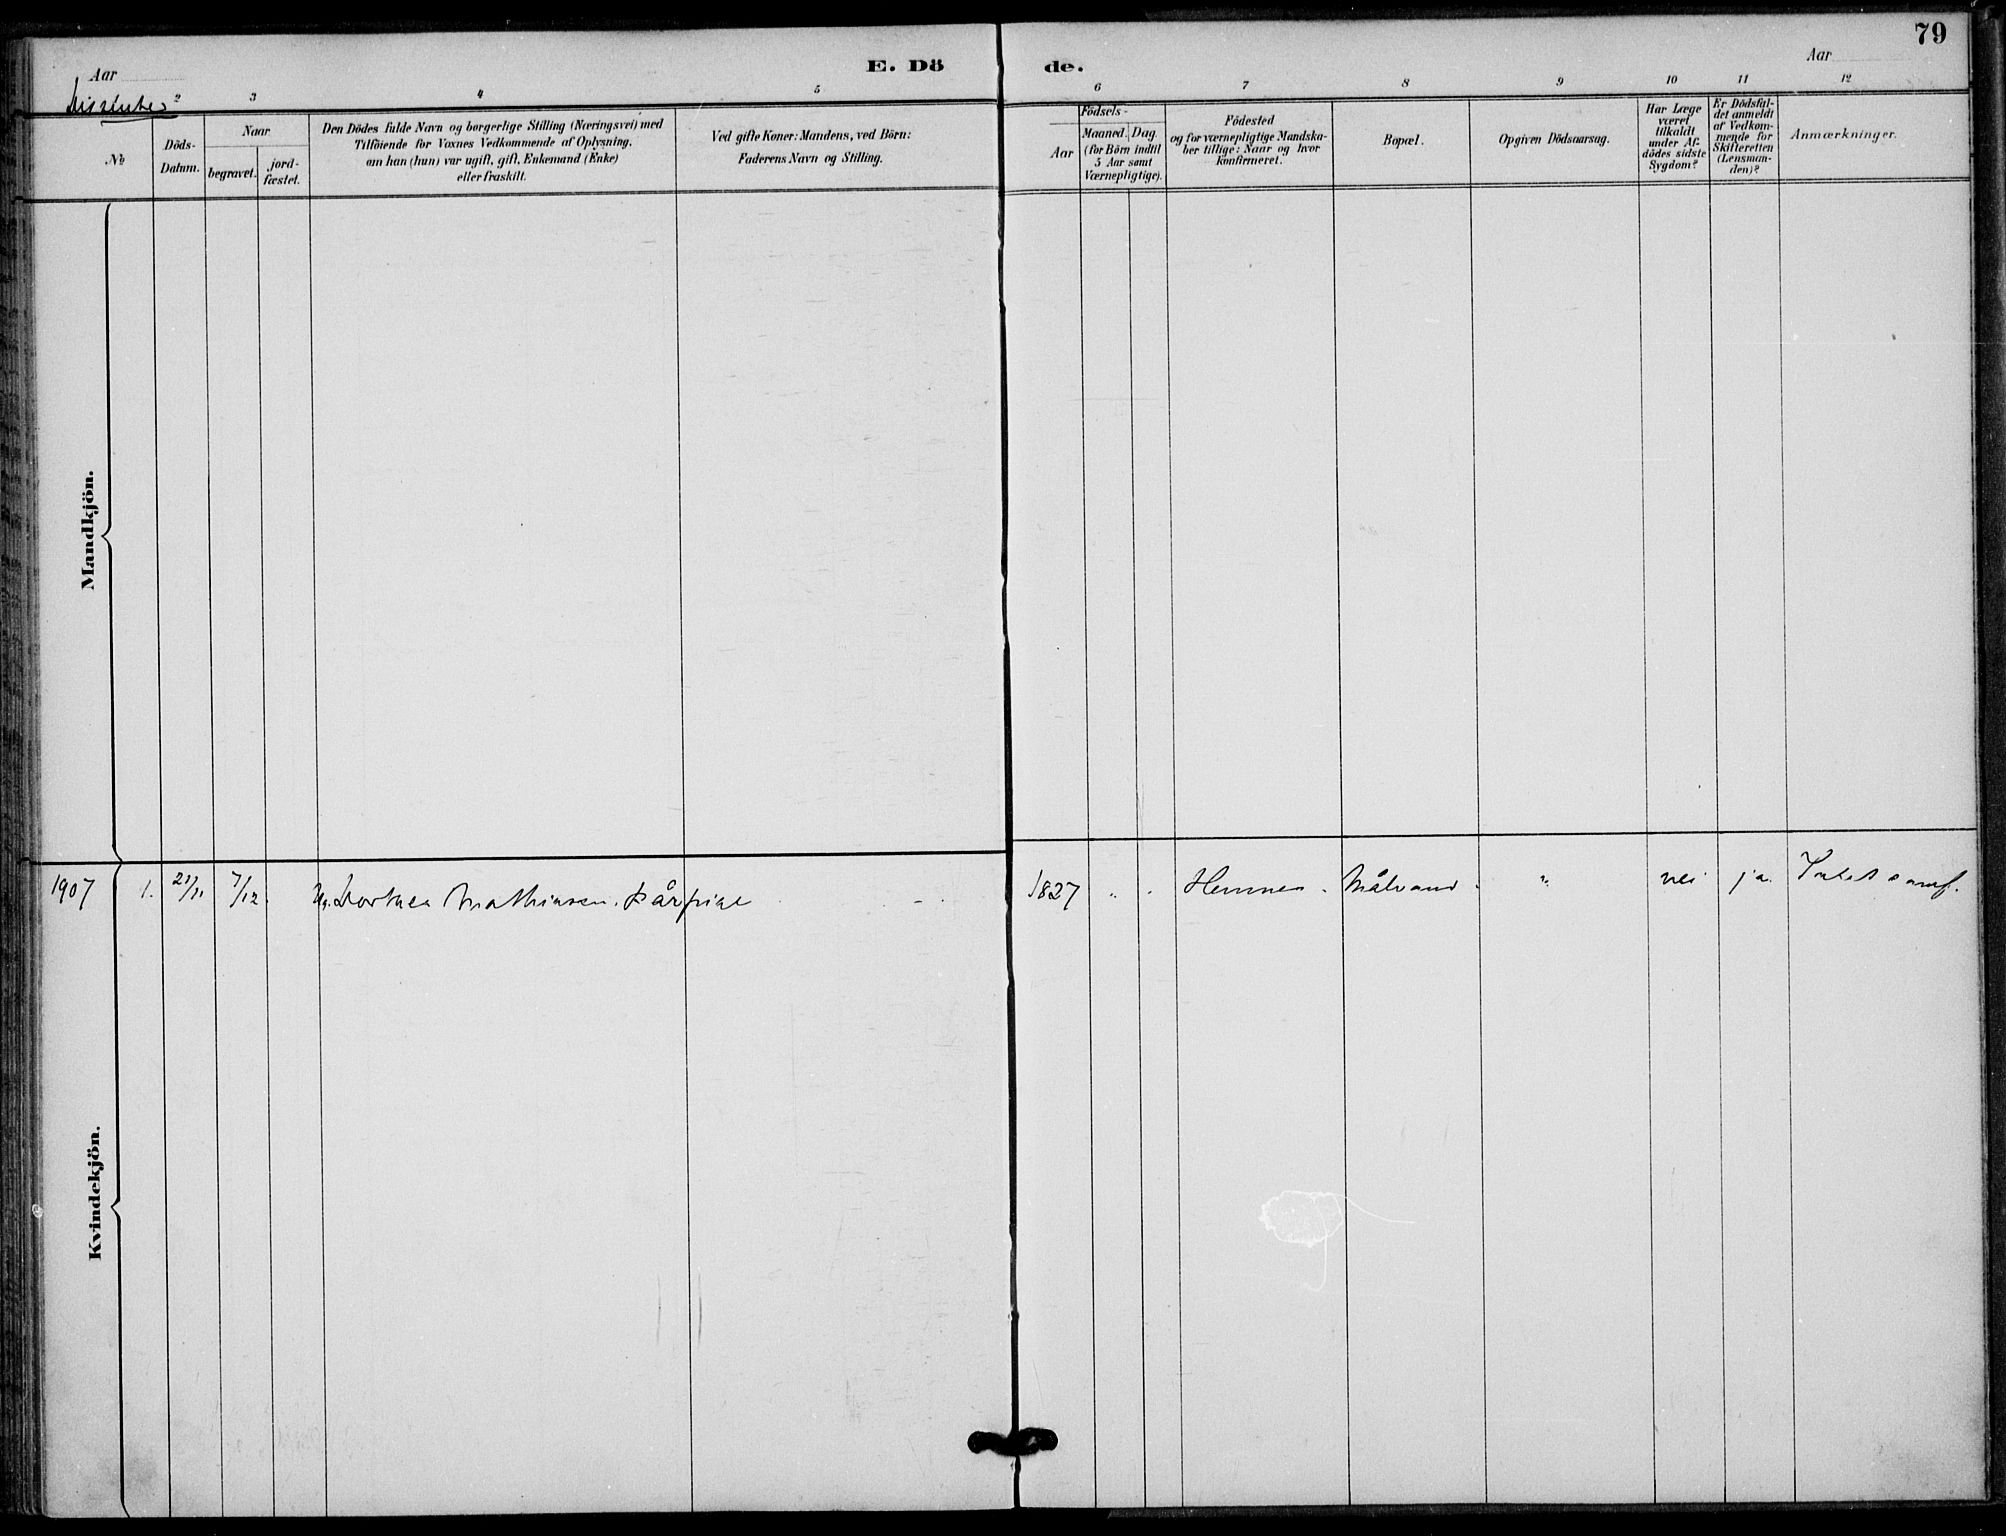 79
Aar
E. Dö
de.
Aar
Dissenter
2
3
4
5
6
7
8
9
10
11
12
№
Döds-
Datum.
Naar
begravet.
jord-
fæstet.
Den Dödes fulde Navn og borgerlige Stilling (Næringsvei) med
Tilföiende for Voxnes Vedkommende af Oplysning,
om han (hun) var ugift, gift, Enkemand (Enke)
eller fraskilt.
Ved gifte Koner: Mandens, ved Börn:
Faderens Navn og Stilling.
Födsels-
Aar
Maaned.
Dag.
(for Börn indtil
5 Aar samt
Værnepligtige).
Födested
og for værnepligtige Mandska-
ber tillige: Naar og hvor
konfirmeret.
Bopæl.
Opgiven Dödsaarsag.
Har Læge
været
tilkaldt
under Af-
dödes sidste
Sygdom?
Er Dödsfal-
det anmeldt
af Vedkom-
mende for
Skifteretten
(Lensman-
den)?
Anmærkninger.
Mandkjön.
1907 1. 21/11 7/12 Ug. Dorthea Mathiasen. 1827 " " Hemnes. Målvand. " nei ja.
Kvindekjön.